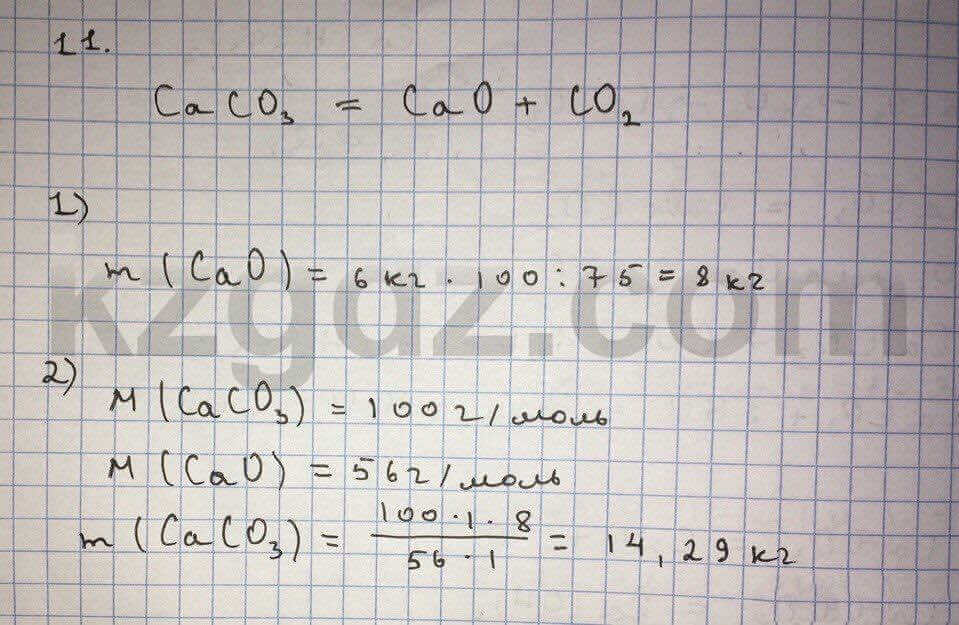 11.
CaCO₃ = CaO + CO₂
1)
m (CaO) = 6 кг · 100 : 75 = 8 кг
kzgdz.com
2)
M (CaCO₃) = 100 г/моль
M (CaO) = 56 г/моль
m (CaCO₃) = 100 · 1 · 8 / 56 · 1 = 14,29 кг